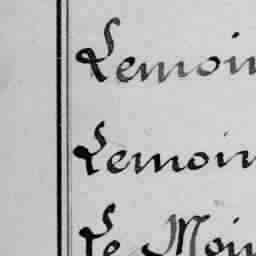 Lemoin
Lemoin
Le Moin